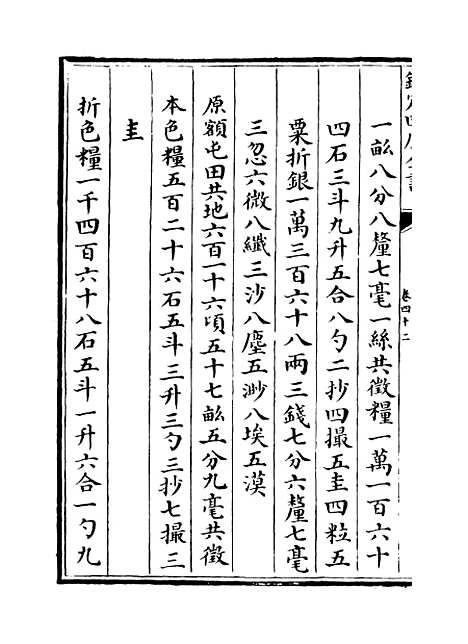 欽定四庫全書
卷四十二
一畝八分八釐七毫一絲共徵糧一萬一百六十
四石三斗九升五合八勺二抄四撮五圭四粒五
粟折銀一萬三百六十八兩三錢七分六釐七毫
三忽六微八纖三沙八塵五渺八埃五漠
原額屯田共地六百一十六頃五十七畝五分九毫共徵
本色糧五百二十六石五斗三升三勺三抄七撮三
圭
折色糧一千四百六十八石五斗一升六合一勺九